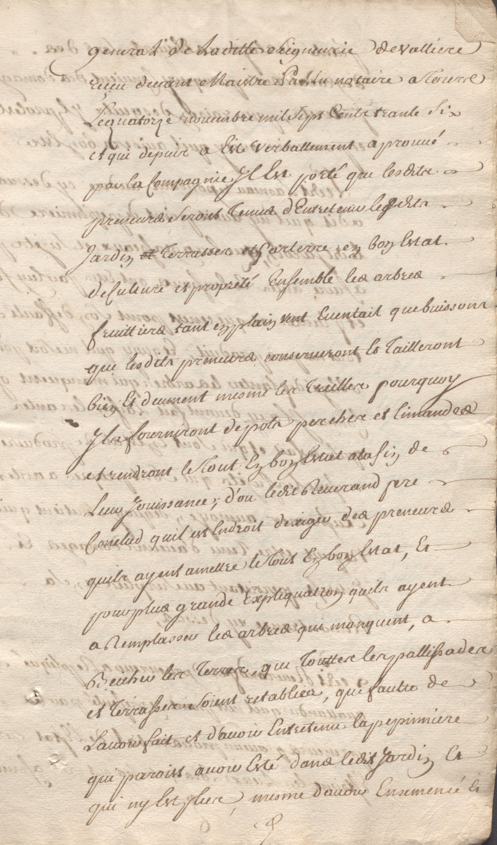 general de laditte seigneurie de valliere
reçu devant Maistre notaire a
Le quatorze novembre mil sept cent trante six
et qui depuis a Esté verballement aprouvé
par la Compagnie Il Est porté que lesdits
preneurs seront Tenus d'Entretenir lesdits
Jardin et Terrasses et parterre en bon Estat
de culture et propreté Ensemble les arbres
fruittiers tant en plain vent Eventail que buissons
que lesdits preneurs conserveront Et Tailleront
bien Et deument mesme les Treilles pourquoy
Ils fourniront de pots perches et limandes
et rendront le Tout En bon Estat a la fin de
Leur Jouissance; d'ou ledit Reverand pere
Conclud quil est En droit dexiger des preneurs
quils ayent a mettre le tout En bon Estat, Et
pour plus grande Expliquation quils ayent
a Remplasser les arbres qui manquent, a
Becher les Terres, que Touttes les pallissades
et terrasses soient retablies, que faute de
Lavoir fait et d'avoir Entretenu la pepinniere
qui paroist avoir Esté dans ledit Jardin Et
qui ny Est plus, mesme d'avoir Ensemencé Et